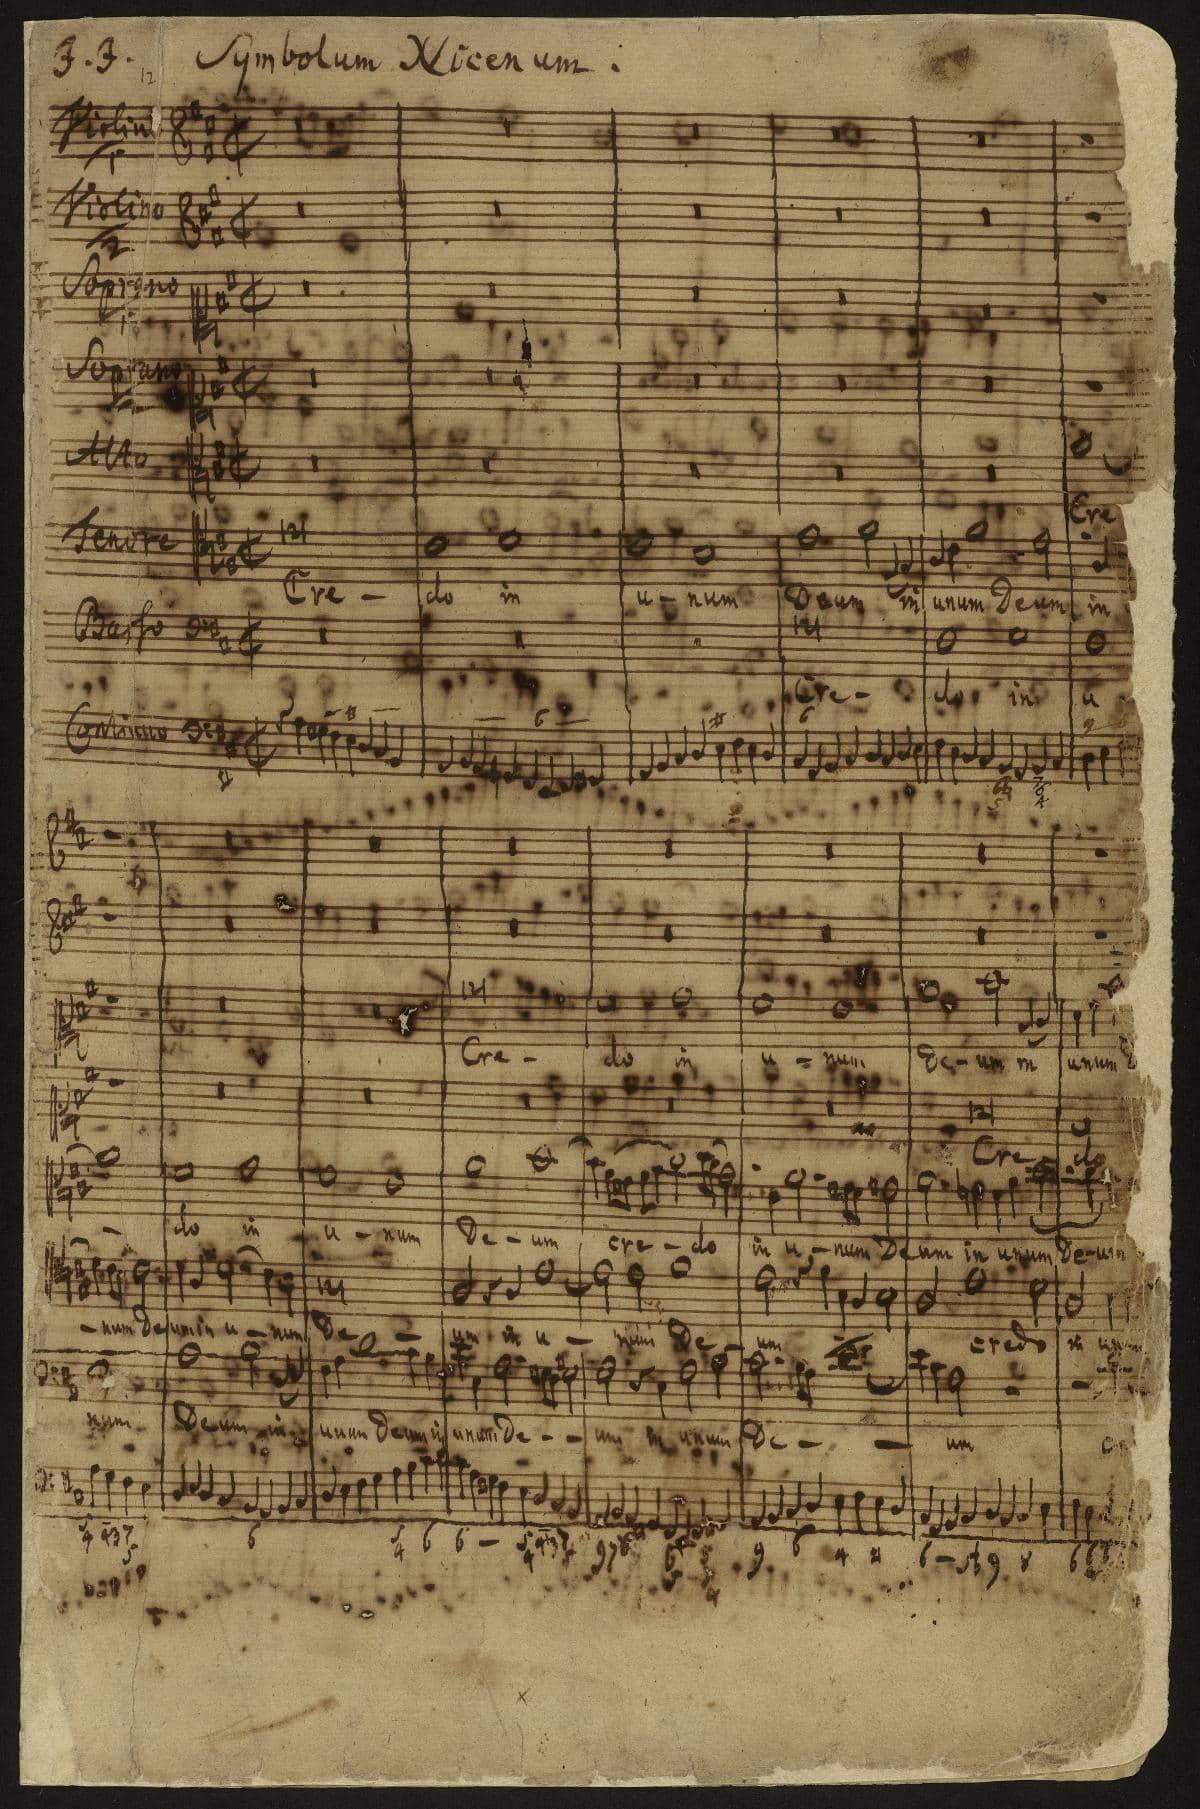 J. J. Symbolum Nicenum.
12
97
Violino
1
Violino
2
Soprano
1
Soprano
2
Alto
Cre
Tenore
Cre - do in u - num Deum in unum Deum in
Basso
Cre - do in u
Continuo
6
6
9
Cre - do in u - num De - um in unum
Cre - do
do in u - num De - um cre - do in u - num Deum in unum De - um
- num Deum in u - num De - um in u - num De - um credo in
num Deum in unum Deum in unum De - - um in unum De - - um
6 6 6 - 9 6 4 6 - 9 6